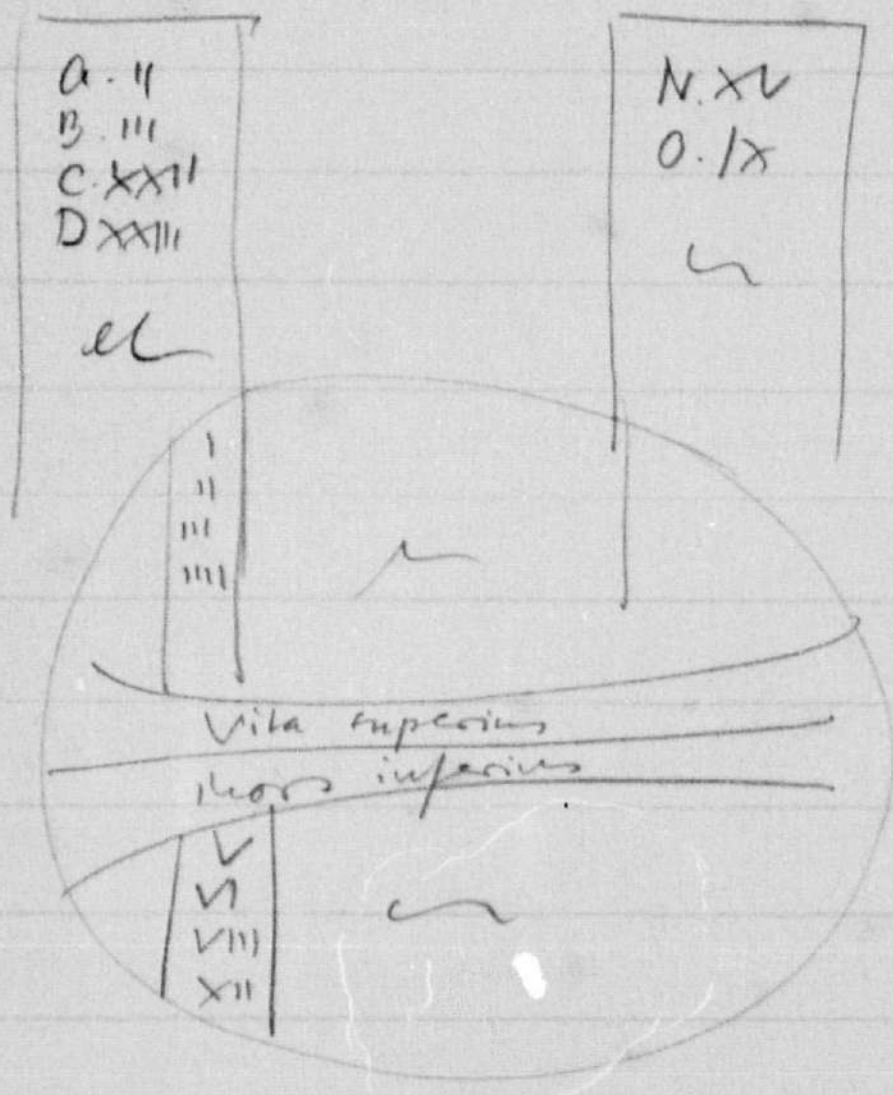 A. II
B. III
C. XXII
D XXIII
N. XV
O. IX
I
II
III
IIII
Vita superius
Mors inferius
V
VI
VIII
XII